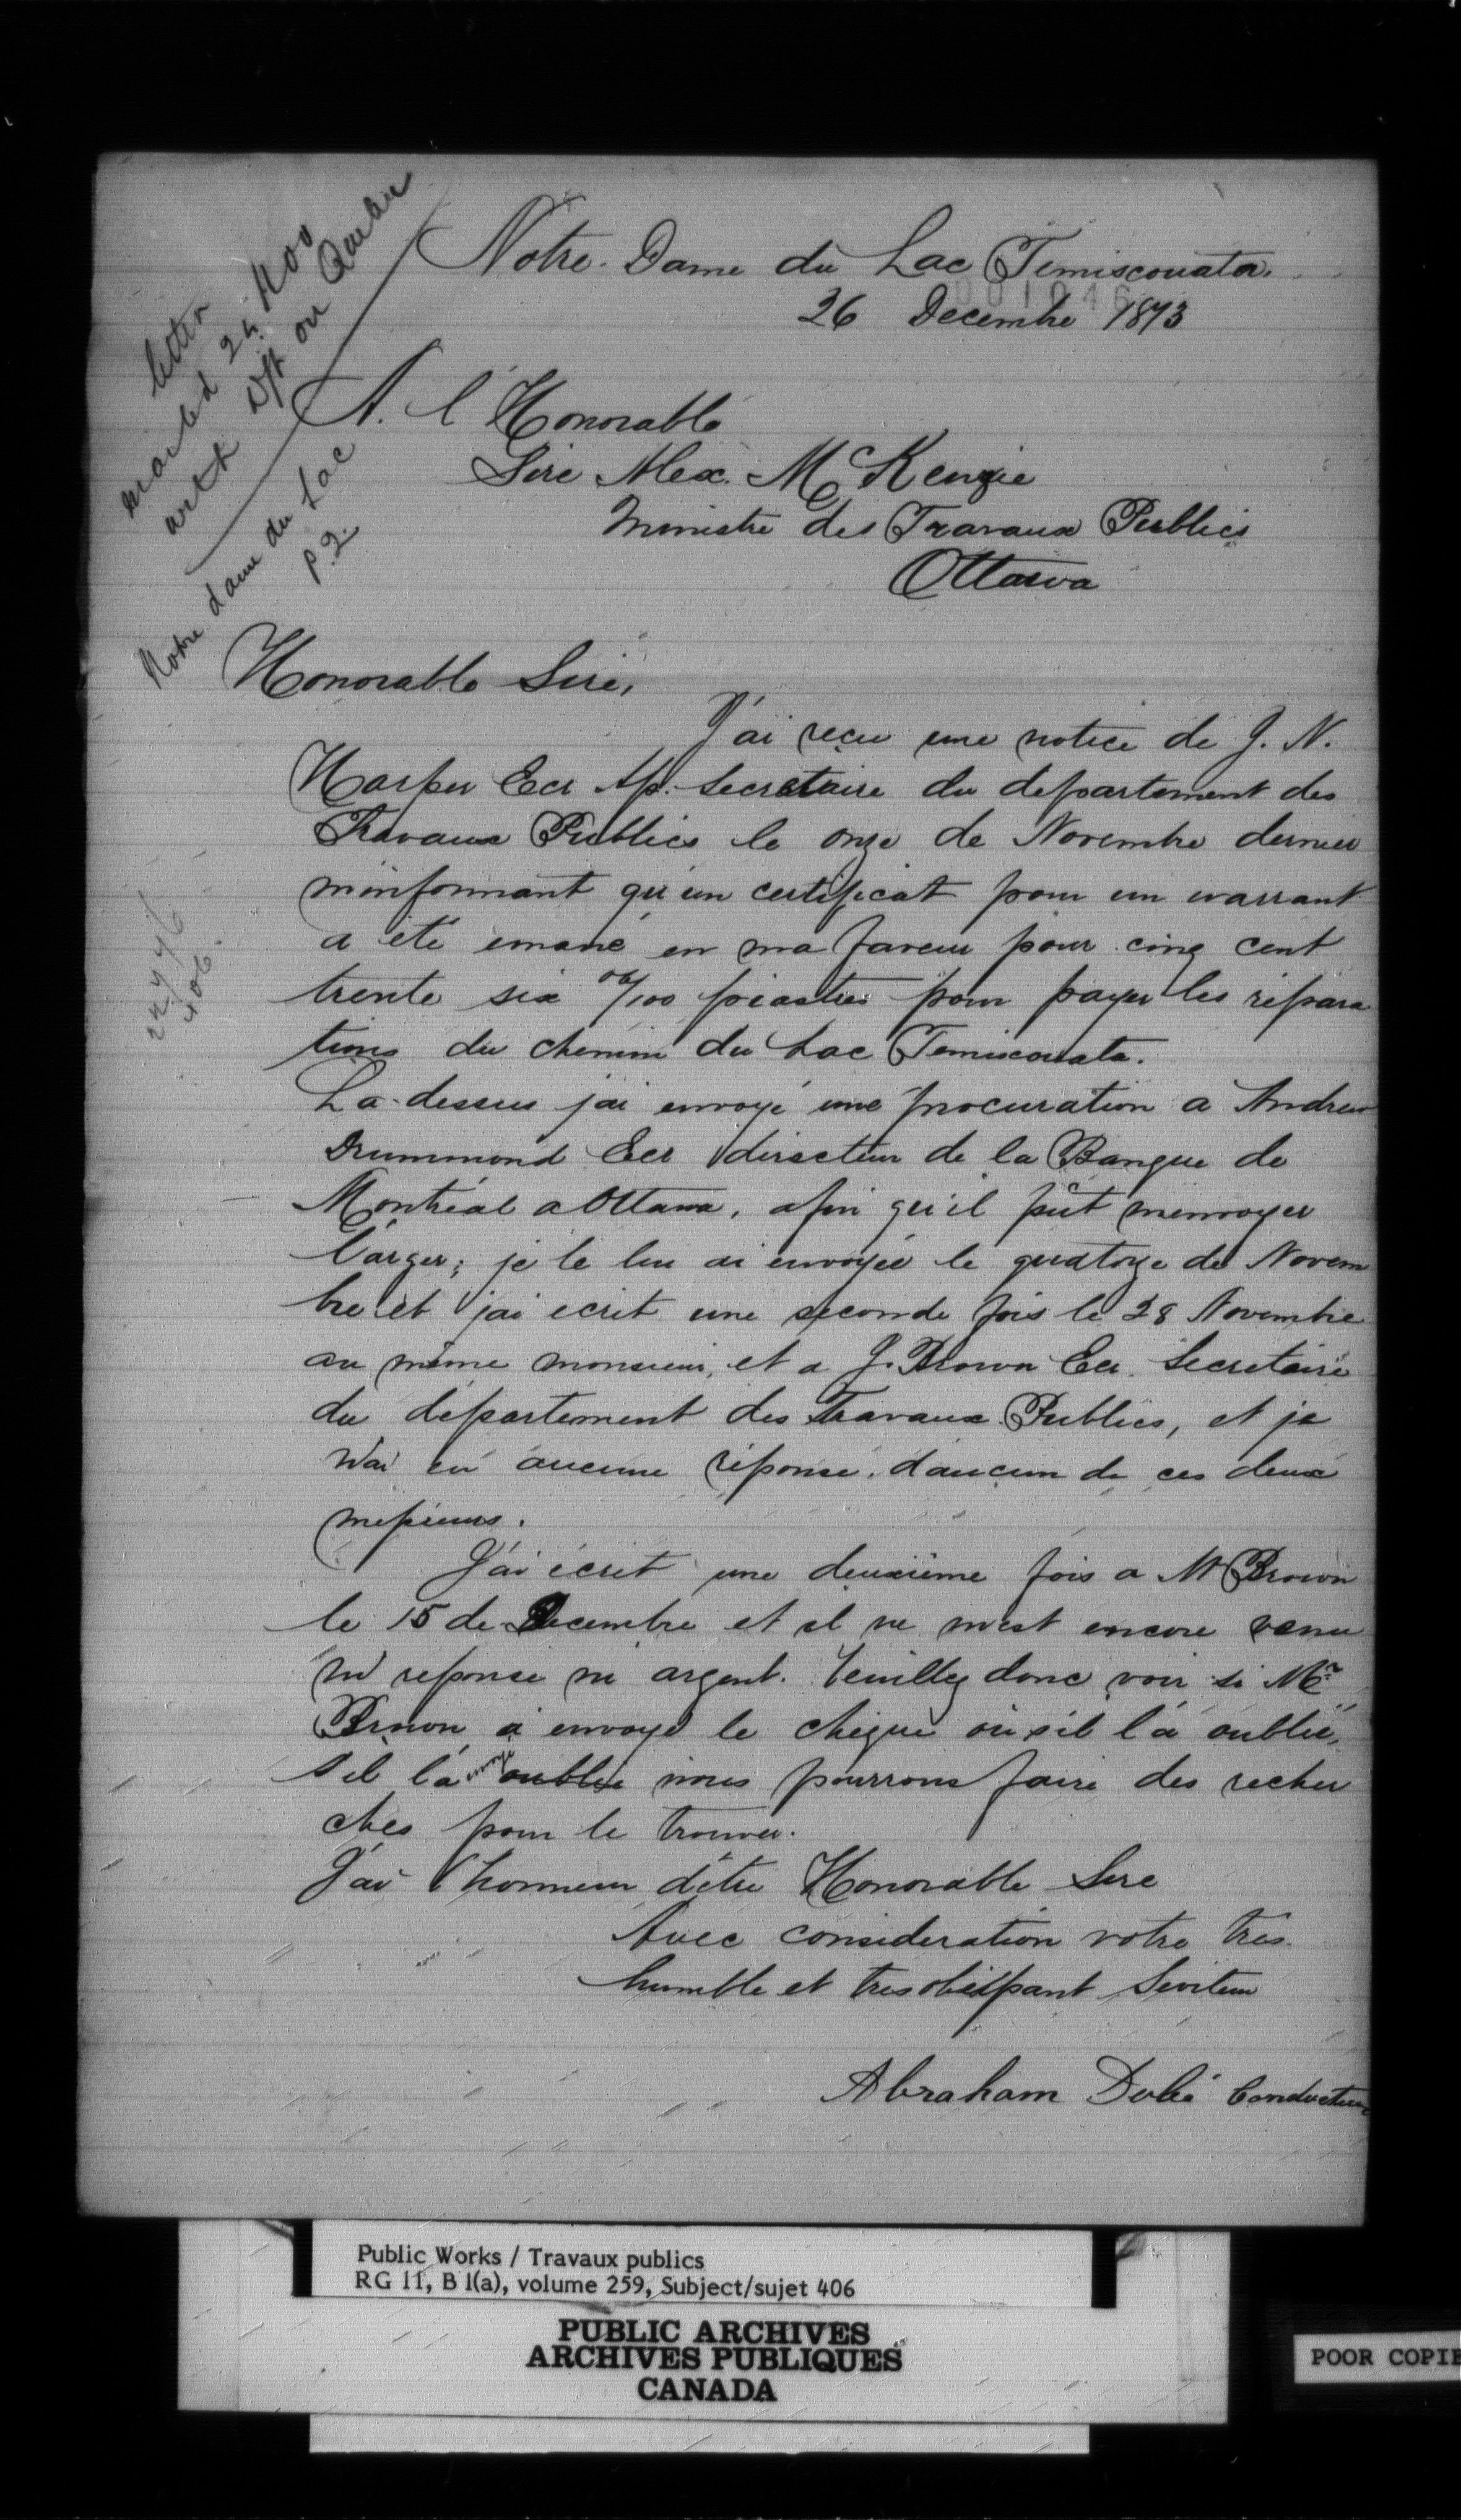 letter
marked 24400
Notre dame du Lac
P.Q.
Notre-Dame du Lac Temiscouata.
26 Decembre 1873
A. l'Honorable
Sire Alex. McKenzie
Ministre des Travaux Publics
Ottawa
Honorable Sire,
J'ai reçu une notice de J. N.
Harper Ecr Ap. Secretaire du departement des
Travaux Publics le onze de Novembre dernier
m'informant qu'un certificat pour un warrant
a été émané en ma faveur pour cinq cent
trente six 06/100 piastres pour payer les répara
tions du chemin du Lac Temiscouata.
La-dessus j'ai envoyé une procuration a Andrew
Drummond Ecr directeur de la Banque de
Montréal a Ottawa, afin qu'il pût m'envoyer
l'arger; je le lui ai envoyée le quatorze de Novem
bre et j'ai ecrit une seconde fois le 28 Novembre
au même monsieur, et a J. Brown Ecr. Secretaire
du département des Travaux Publics, et je
n'ai eu aucune réponse. d'aucun de ces deux
messieurs.
J'ai écrit une deuxième fois a Mr Brown
le 15 de Decembre et il ne m'est encore venu
ni reponse ni argent. Veuillez donc voir si Mr
Brown a envoyé le chèque ou s'il l'a oublié,
s'il l'a envoyé oublié nous pourrons faire des recher
ches pour le trouver.
J'ai l'honneur d'être Honorable Sire
Avec consideration votre très
humble et tres obéissant Seviteur
Abraham Dubé Conducteur
22776
406.
Public Works / Travaux publics
RG 11, B 1(a), volume 259, Subject/sujet 406
PUBLIC ARCHIVES
ARCHIVES PUBLIQUES
CANADA
POOR COPIE